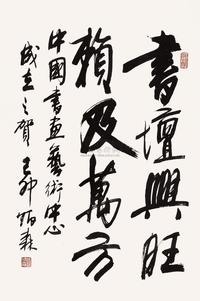 書壇興旺
賴及萬方
中國書畫藝術中心
成立之賀 己卯 炳森